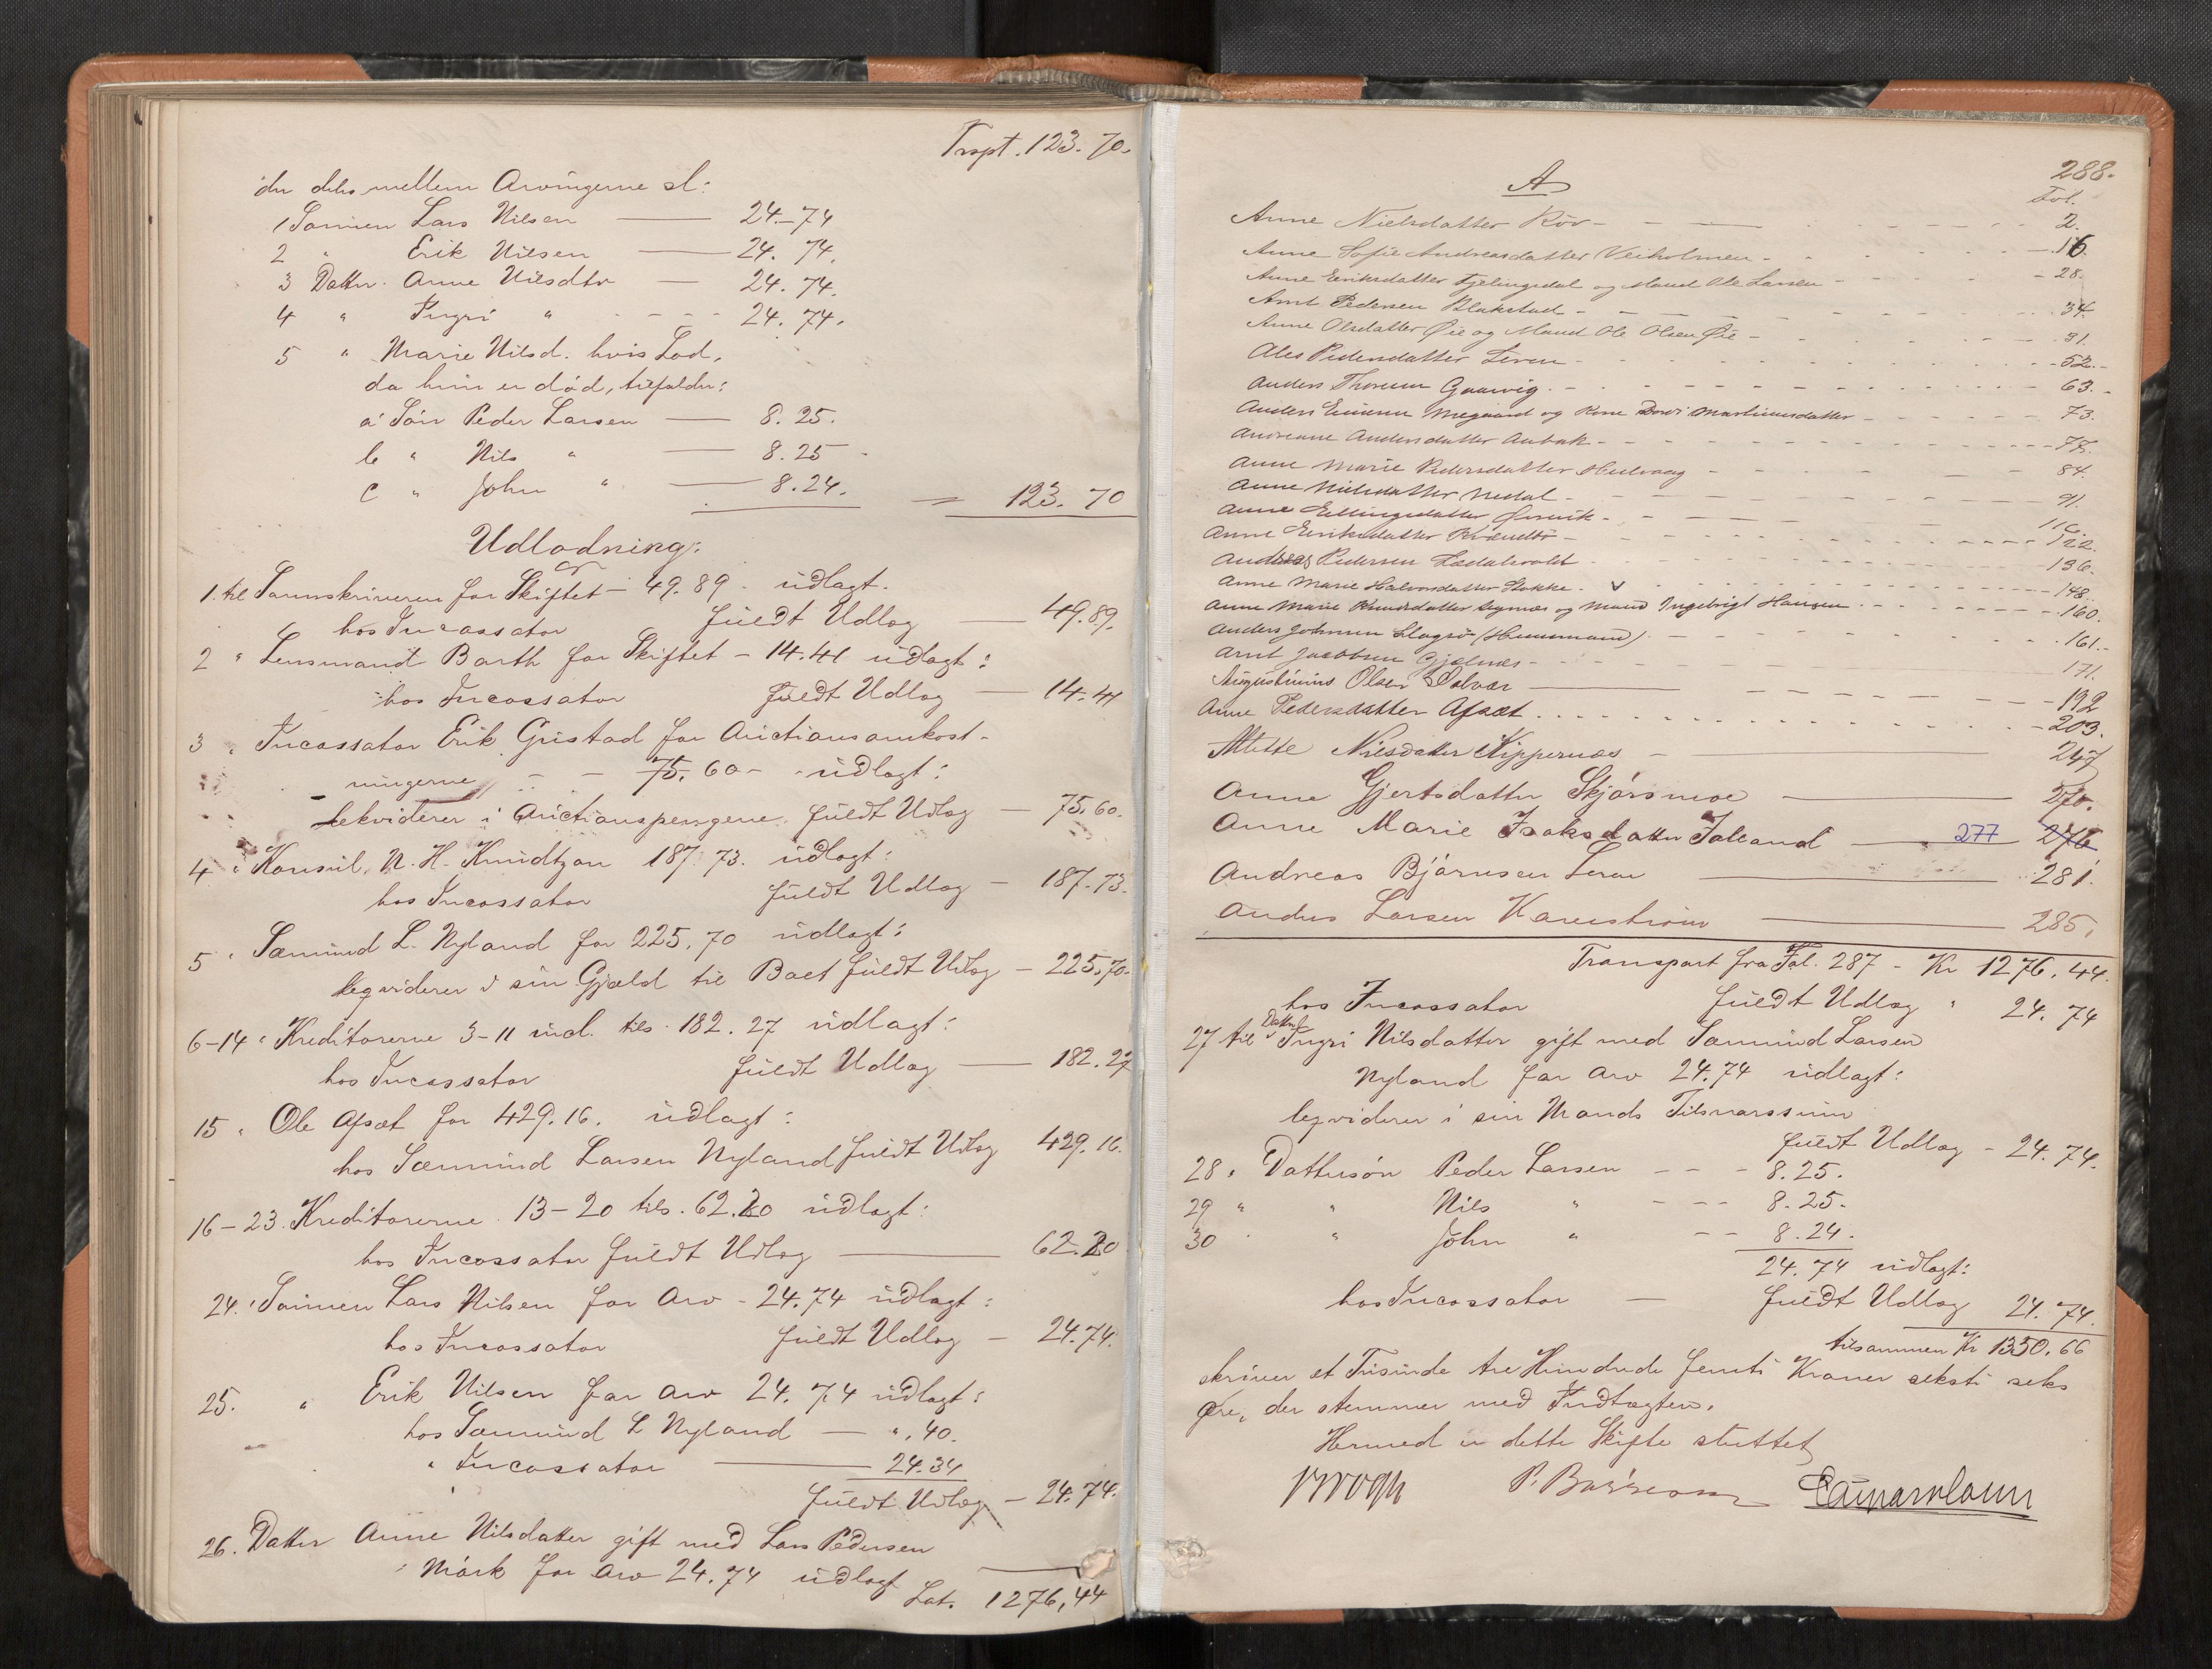 Trspt. 123. 70.
der deles mellem Arvingerne sl:
1 Sønnen Lars Nilsen — 24-74
2 " Erik Nilsen — 24. 74.
3 Datter. Anne Nilsdtr — 24. 74.
4 " Ingri " - - - 24. 74.
5 " Marie Nilsd. hvis Lod,
da hun er død, tilfalder:
a Søn Peder Larsen — 8. 25.
b " Nils " — 8. 25 -
c " John " — 8. 24. = 123. 70
Udlodning:
1. til Sorenskriveren for Skiftet - 49. 89 - udlagt.
hos Incassator fuldt Udlæg — 49. 89.
2 " Lensmand Barth for Skiftet - 14. 41 udlagt:
hos Incassator fuldt Udlæg — 14. 41
3 " Incassator Erik Gustad for Auctionsomkost-
ningerne - - 75. 60 - udlagt:
lekviderer i Auctionspengene. fuldt Udlæg — 75. 60.
4 " Konsul N. H. Knudtzon 187. 73. udlagt:
hos Incassator fuldt Udlæg - 187. 73.
5 " Sæmund L. Nyland for 225. 70 udlagt:
leqviderer i sin Gjæld til Boet fuldt Udlæg - 225. 70.
6-14 " Kreditorerne 3-11 incl. tils. 182. 27 udlagt:
hos Incassator fuldt Udlæg — 182. 27
15 " Ole Afsæt for 429. 16. udlagt:
hos Sæmund Larsen Nyland fuldt Udlæg 429. 16.
16-23. Kreditorerne 13-20 tils. 62. 20 udlagt:
hos Incassator fuldt Udlæg — 62. 20
24. " Sønnen Lars Nilsen for Arv - 24. 74 udlagt:
hos Incassator fuldt Udlæg — 24. 74.
25. " Erik Nilsen for Arv 24. 74 udlagt:
hos Sæmund L Nyland — ". 40.
" Incassator — 24. 34
fuldt Udlæg — 24. 74.
26. Datter Anne Nilsdatter gift med Lars Pedersen
Mörk for Arv 24. 74 udlagt
Lat. 1276,44
288.
A
Fol.
Anne Nielsdatter Rör - 2.
Anne Sofie Andreasdatter Veiholmen - 16.
Anne Eriksdatter Fjelingsdal og Mand Ole Larsen - 28.
Arnt Pedersen Blakstad - 34.
Anne Olsdatter Øie og Mand Ole Olsen Øie - 31.
Ales Pedersdatter Leren - 52.
Anders Thoresen Gaarvig - 63.
Anders Megaard og Kone Martinusdatter - 73.
Andreane Andersdatter Aubak - 77.
Anne Marie Pedersdatter Hedvaag - 84.
Anne Nielsdatter Nedal - 91.
Anne Ellingsdatter Ørsvik - 116.
Anne Eriksdatter - 122.
Andreas Pedersen - 136.
Anne Marie Halvorsdatter Stokke - 148.
Anne Marie Knudsdatter og Mand Ingebrigt Hansen - 160.
Anders Johnsen (Huusmand) - 161.
Arnt Jacobsen Gjelnes - 171.
Augustinus Olsen Solvær — 192
Anne Pedersdatter Afsæt - 203.
Mette Nilsdatter Kippernæs — 247
Anne Gjertsdatter Skjörsmoe — 270.
Anne Marie Isaksdatter Foleand — 277 276
Andreas Björnsen Leren — 281.
Anders Larsen Kaneström — 285.
Transport fra Fol. 287 - Kr 1276. 44.
hos Incassator fuldt Udlæg " 24. 74
27 til Datter Ingri Nilsdatter gift med Sæmund Larsen
Nyland for Arv 24. 74 udlagt:
leqviderer i sin Mands Tilsvarssum
fuldt Udlæg - 24. 74.
28. Dattersøn Peder Larsen - - - 8. 25.
29 " " Nils " - - - 8. 25.
30 " " John " - - 8. 24.
24. 74 udlagt:
hos Incassator — fuldt Udlæg 24. 74.
tilsammen Kr 1350. 66
skriver et Tusinde tre Hundrede femti Kroner seksti seks
Øre, der stemmer med Indtægten.
Hermed er dette Skifte sluttet
Krogh